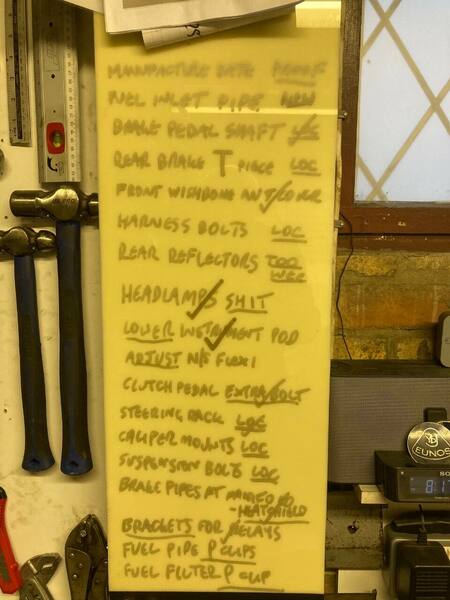 MANUFACTURE DATE PROOF
FUEL INLET PIPE NEW
BRAKE PEDAL SHAFT LOC
REAR BRAKE T PIECE LOC
FRONT WISHBONE
HARNESS BOLTS LOC
REAR REFLECTORS TOO
WEE
HEADLAMPS SHIT
LOWER INSTRUMENT POD
ADJUST N/S FLEXI
CLUTCH PEDAL EXTRA BOLT
STEERING RACK LOC
CALIPER MOUNTS LOC
SUSPENSION BOLTS LOC
BRAKE PIPES AT MANIFOLD
-HEATSHIELD
BRACKETS FOR RELAYS
FUEL PIPE P CLIPS
FUEL FILTER P CLIP
EUNOS
SO